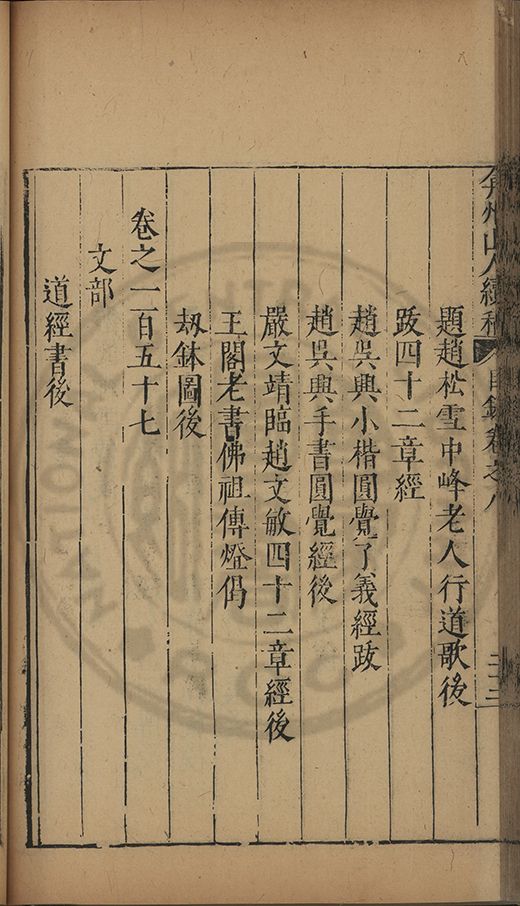 弇州山人續稿 目錄卷之八 二十三
題趙松雪中峰老人行道歌後
跋四十二章經
趙吳興小楷圓覺了義經跋
趙吳興手書圓覺經後
嚴文靖臨趙文敏四十二章經後
王閣老書佛祖傳燈偈
刼鉢圖後
卷之一百五十七
文部
道經書後